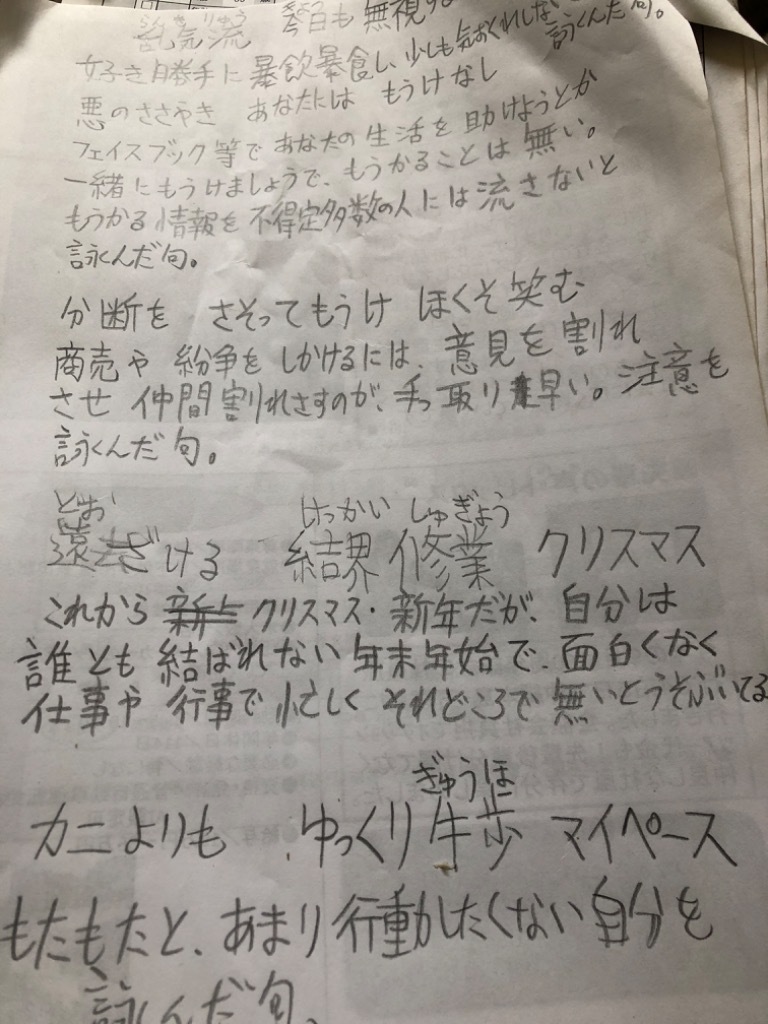 らんきりゅう きょう
乱気流 今日も 無視する
好き勝手に 暴飲暴食し、少しも気おくれしない 詠んだ句。
悪のささやき あなたには もうけなし
フェイスブック等で あなたの生活を助けようとか
一緒にもうけましょうで、もうかることは無い。
もうかる情報を不得定多数の人には流さないと
詠んだ句。
分断を さそってもうけ ほくそ笑む
商売や 紛争を しかけるには、意見を割れ
させ 仲間割れさすのが、手っ取り早い。注意を
詠んだ句。
とお けっかい しゅぎょう
遠ざける 結界修業 クリスマス
これから クリスマス・新年だが、自分は
誰とも 結ばれない 年末年始で、面白くなく
仕事や 行事で 忙しく それどころで 無いとうそぶいてる
ぎゅうほ
カニよりも ゆっくり牛歩 マイペース
もたもたと、あまり行動したくない自分を
詠んだ句。